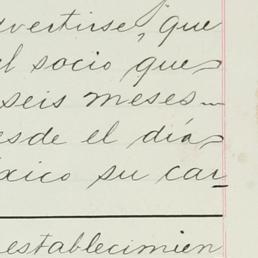 dvertirse, que
el socio que-
seis meses...
esde el día
éxico su car-
establecimien